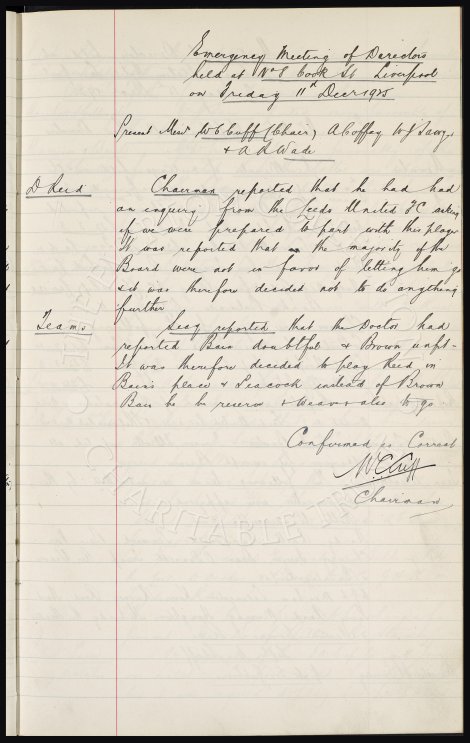 Emergency Meeting of Directors
held at No 8 Cook St Liverpool
on Friday 11th Decr 1925
Present Messrs W C Cuff (Chair) A Coffey W J Sawyer
& A R Wade
D Reid
Chairman reported that he had had
an inquiry from the Leeds United FC asking
if we were prepared to part with this player
It was reported that the majority of the
Board were not in favor of letting him go
& it was therefore decided not to do anything
further
Teams
Secy reported that the Doctor had
reported Bain doubtful & Brown unfit -
It was therefore decided to play Reid in
Bain's place & Peacock instead of Brown
Bain be in reserve & Weaver also to go
Confirmed as Correct
W C Cuff
Chairman
CHARITABLE TR